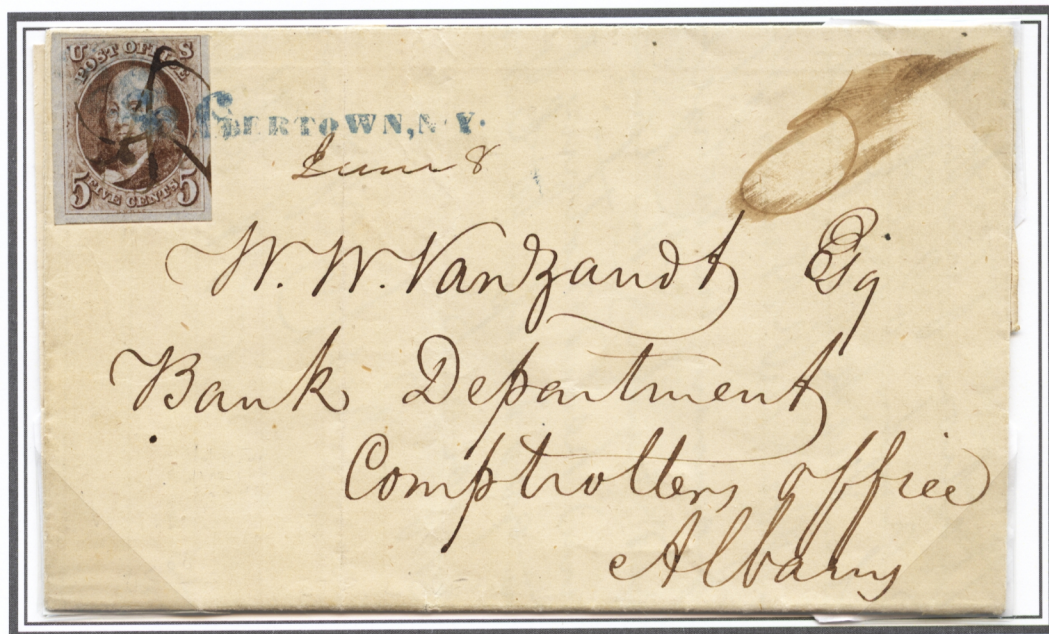 U S
POST OFFICE
5 FIVE CENTS 5
BERTOWN, N.Y.
June 8
W. W. Vandzandt Esq
Bank Department
Comptrollers office
Albany